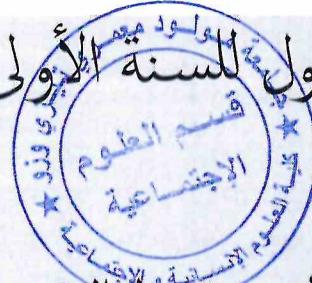 ول للسنة الأولى
جامعة مولود معمري تيزي وزو
قسم العلوم
الإجتماعية
كلية العلوم الإنسانية و الإجتماعية